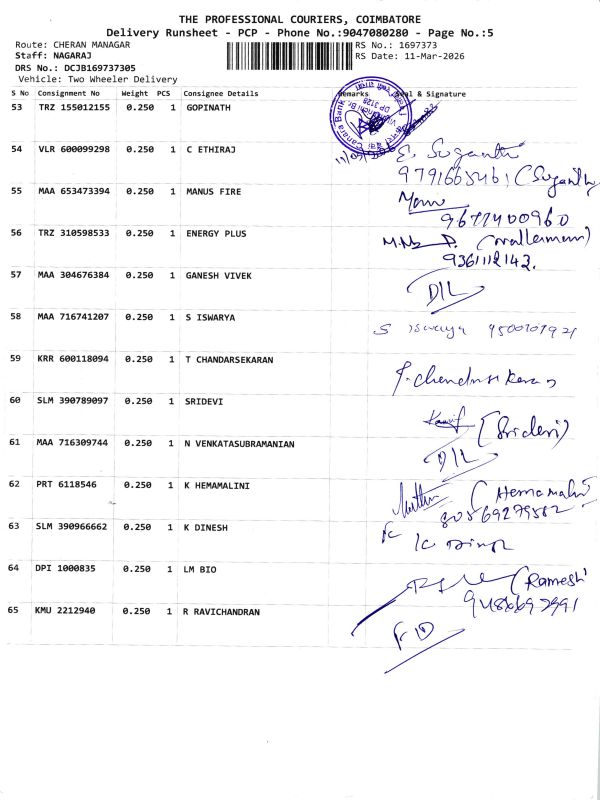 THE PROFESSIONAL COURIERS, COIMBATORE
Delivery Runsheet - PCP - Phone No.:9047080280 - Page No.:5
Route: CHERAN MANAGAR
RS No.: 1697373
Staff: NAGARAJ
RS Date: 11-Mar-2026
DRS No.: DCJB169737305
Vehicle: Two Wheeler Delivery
S No Consignment No Weight PCS Consignee Details Remarks Seal & Signature
53 TRZ 155012155 0.250 1 GOPINATH
Canara Bank
DP 3728
54 VLR 600099298 0.250 1 C ETHIRAJ E. Suganthi
55 MAA 653473394 0.250 1 MANUS FIRE
9677400960
56 TRZ 310598533 0.250 1 ENERGY PLUS
9361112142.
57 MAA 304676384 0.250 1 GANESH VIVEK D/L
58 MAA 716741207 0.250 1 S ISWARYA S Iswarya
59 KRR 600118094 0.250 1 T CHANDARSEKARAN
60 SLM 390789097 0.250 1 SRIDEVI (Sridevi)
61 MAA 716309744 0.250 1 N VENKATASUBRAMANIAN D/L
62 PRT 6118546 0.250 1 K HEMAMALINI
63 SLM 390966662 0.250 1 K DINESH
64 DPI 1000835 0.250 1 LM BIO (Ramesh)
65 KMU 2212940 0.250 1 R RAVICHANDRAN